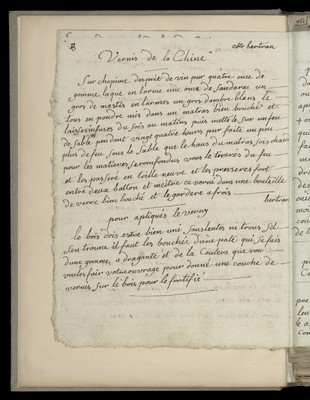 Vernis de la Chine
Sur chopine desprit de vin pur quatre once de
gomme laque en larme une once de sandarac un
gros de mastis en larmes un gros dambre blanc le
tous en poudre mis dans un matras bien bouché et
laisser infuser du soir au matins puis mettéle sur un feu
de sable pendant vingt quatre heures pur faite un peu
plus de feu sous le sable que le haus du matras sois chaud
pour les matieres serompondus vous le tirerés du feu
et les passeré en toille neuve et les presseres fort
entre deux batton et meittre ce vernis dans une bouteille
de verre bien bouché et le garderé a frois
bertran
pour apliquer le verny
le bois dois estre bien uni sans fentes ne trous, sil
sen trouve il faut les bouches dune paté qui se fais
dune gomme, a dragante et de la couleur que vous
voules fair votre ouvrage pour donné une couche de
vernis sur le bois pour le fortifié